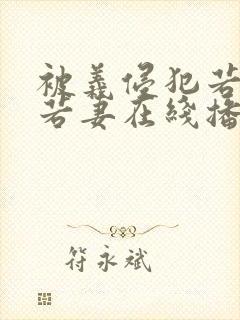 被義侵犯若
若妻在綫播
符永斌